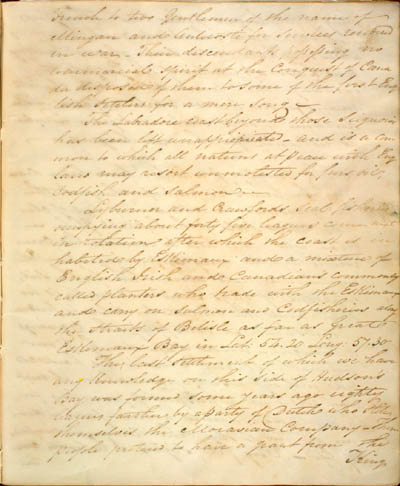 French to two Gentlemen of the name of
Mingan and for Services rendered
in war. Their descendants possessing no
commercial spirit at the Conquest of Cana
da disposed of them to some of the first Eng
lish Settlers for a mere Song
The Labradore coast beyond those Signories
has been left unappropriated - and is a com
mon to which all nations at peace with Eng
land may resort unmolested for furs oil,
Codfish and Salmon
Lyburner and Crawfords Seal
occupying about forty five leagues comes next
in rotation after which the coast is in
habited by Eskimaux and a mixture of
English Irish and Canadians commonly
called planters who trade with the Eskimaux
and carry on Salmon and Codfisheries along
the Straits of Belisle as far as Great
Eskimaux Bay in Lat: 54.20 Long: 57.30
The last settlement of which we have
any knowledge on this side of Hudsons
Bay was formed some years ago eighty
leagues farther by a party of Dutch who Stile
themselves the Moravian Company - these
people pretend to have a grant from the
King